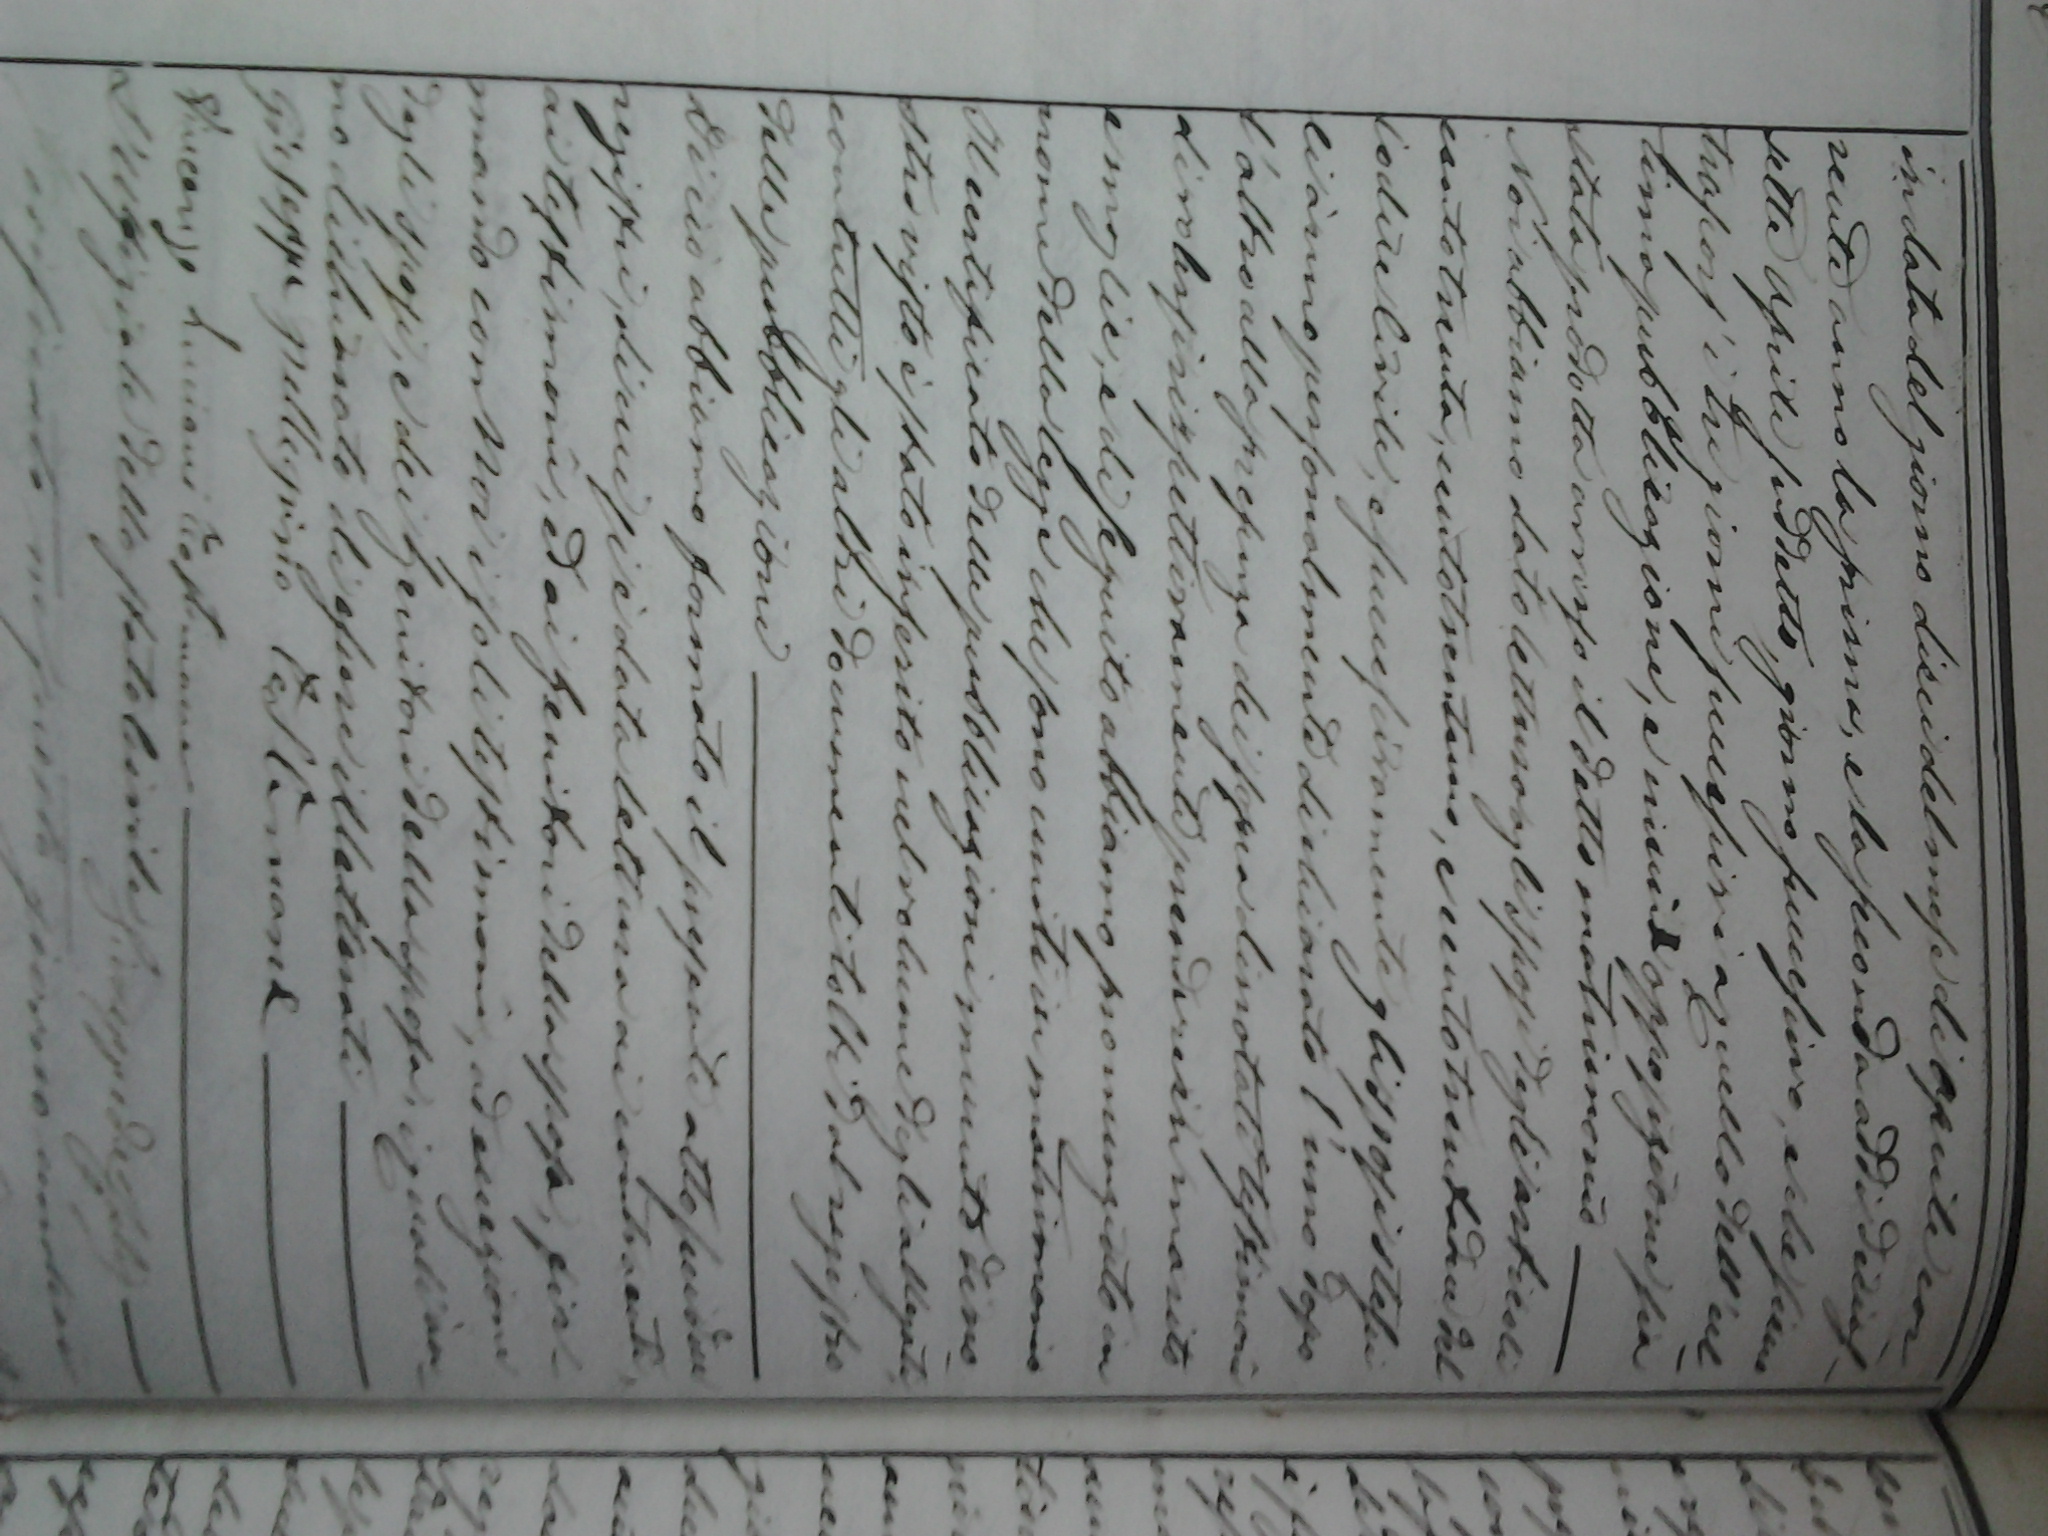 in data del giorno dieci del mese di Aprile cor-
rente anno la prima, e la seconda addi diecias-
sette Aprile suddetto, giorno successivo, e che siene
trascors' i tre giorni successivi a quello dell'ul-
tima pubblicazione, e niuna opposizione sia
stata prodotta avverso il detto matrimonio
Noi abbiamo dato lettura agli sposi degli articoli
centotrenta, centotrentuno, e centotrentadue del
Codice Civile, e successivamente gli sposi stessi
ci ànno personalmente dichiarato l'uno dopo
l'altro alla presenza dei sopra dinotati testimoni
di volersi rispettivamente prendere in marito
e moglie, e di seguito abbiamo pronunziato in
nome della legge che sono uniti in matrimonio
Il certificato delle pubblicazioni munito di no-
stro visto è stato inserito nel volume degli allegati,
con tutti gli altri documenti tolti dal registro
delle pubblicazioni
Di ciò abbiamo formato il presente atto sui due
registri, di cui si è data lettura ai contraenti,
ai testimoni, ed ai Genitori della sposa, fir-
mando con Noi i soli testimoni, ad eccezione
degli sposi, e dei Genitori della sposa, i quali àn-
no dichiarato di essere illetterati
Giuseppe Pellegrino Testimone
Vincenzo Luciani Testimone
L'Uffiziale dello stato Civile Giuseppe
in questo giorno